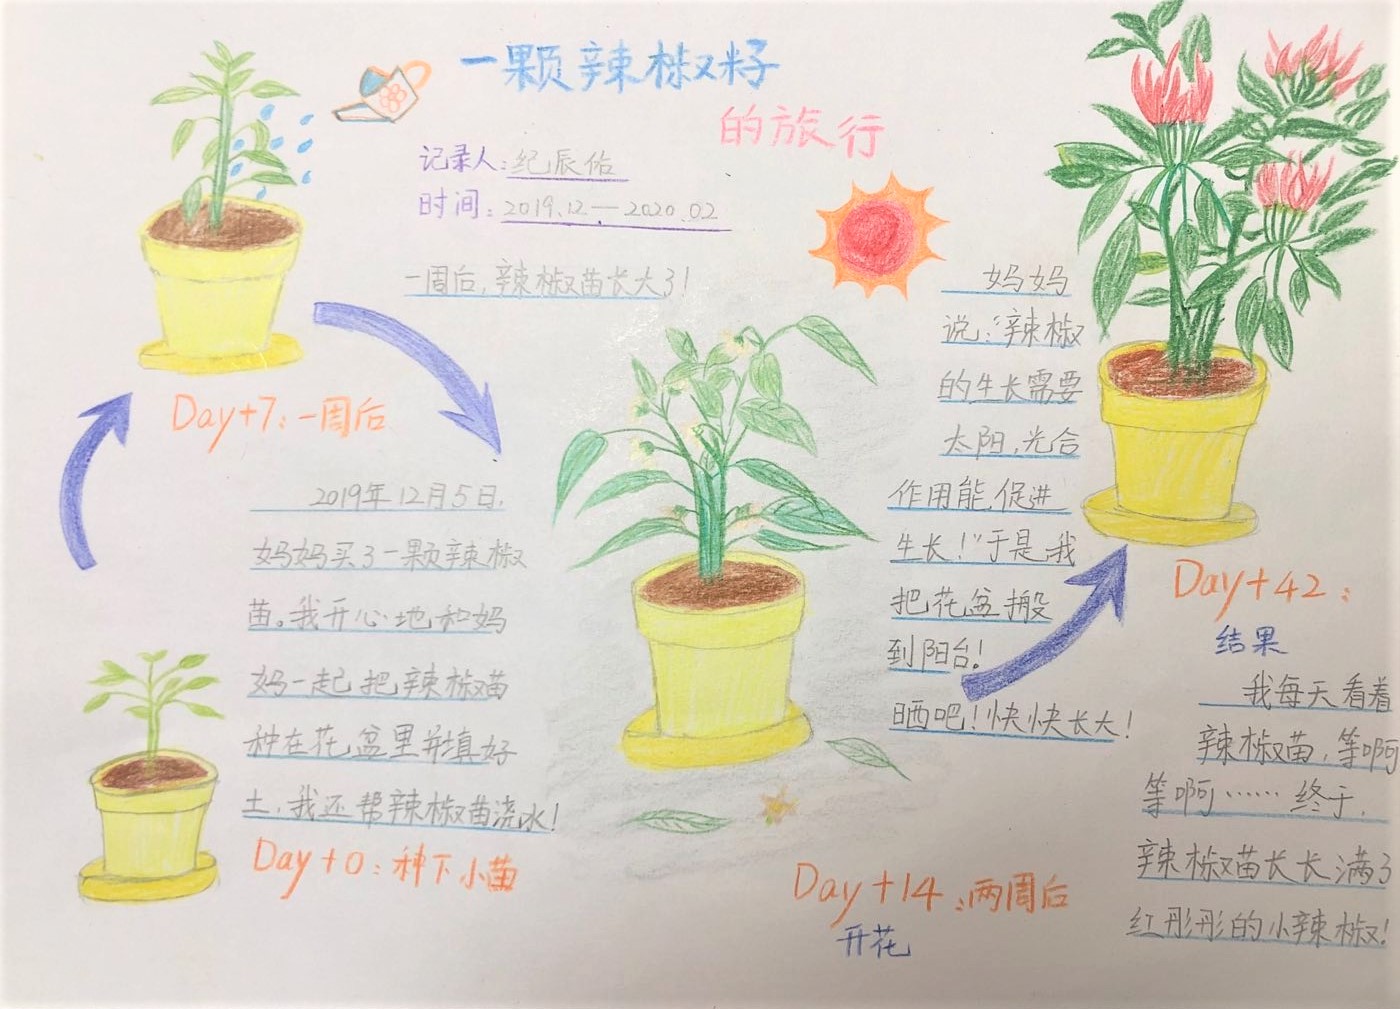 一颗辣椒籽
的旅行
记录人:纪辰佑
时间:2019.12—2020.02
一周后,辣椒苗长大了!
Day+7:一周后
2019年12月5日,
妈妈买了一颗辣椒
苗。我开心地和妈
妈一起把辣椒苗
种在花盆里并填好
土,我还帮辣椒苗浇水!
Day+0:种下小苗
妈妈
说:“辣椒
的生长需要
太阳,光合
作用能促进
生长!”于是,我
把花盆搬
到阳台!
晒吧!快快长大!
Day+14:两周后
开花
Day+42:
结果
我每天看着
辣椒苗,等啊
等啊……终于,
辣椒苗长长满了
红彤彤的小辣椒!